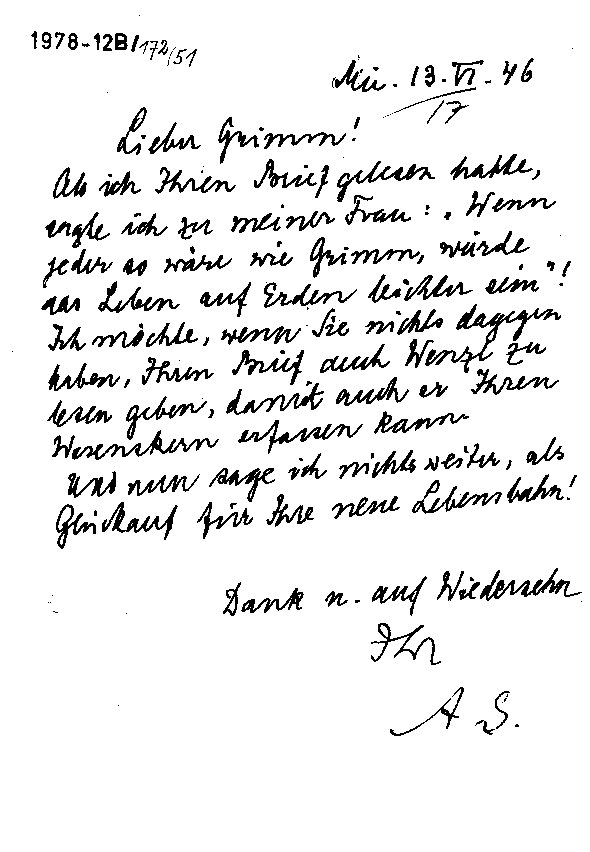 1978-12B/172/51
Mü. 13.VI.46
17
Lieber Grimm!
Als ich Ihren Brief gelesen hatte,
sagte ich zu meiner Frau: „Wenn
jeder so wäre wie Grimm, würde
das Leben auf Erden leichter sein"!
Ich möchte, wenn Sie nichts dagegen
haben, Ihren Brief auch Wenzl zu
lesen geben, damit auch er Ihren
Wesenskern erfassen kann.
Und nun sage ich nichts weiter, als
Glückauf für Ihre neue Lebensbahn!
Dank u. auf Wiedersehn
Ihr
A S.